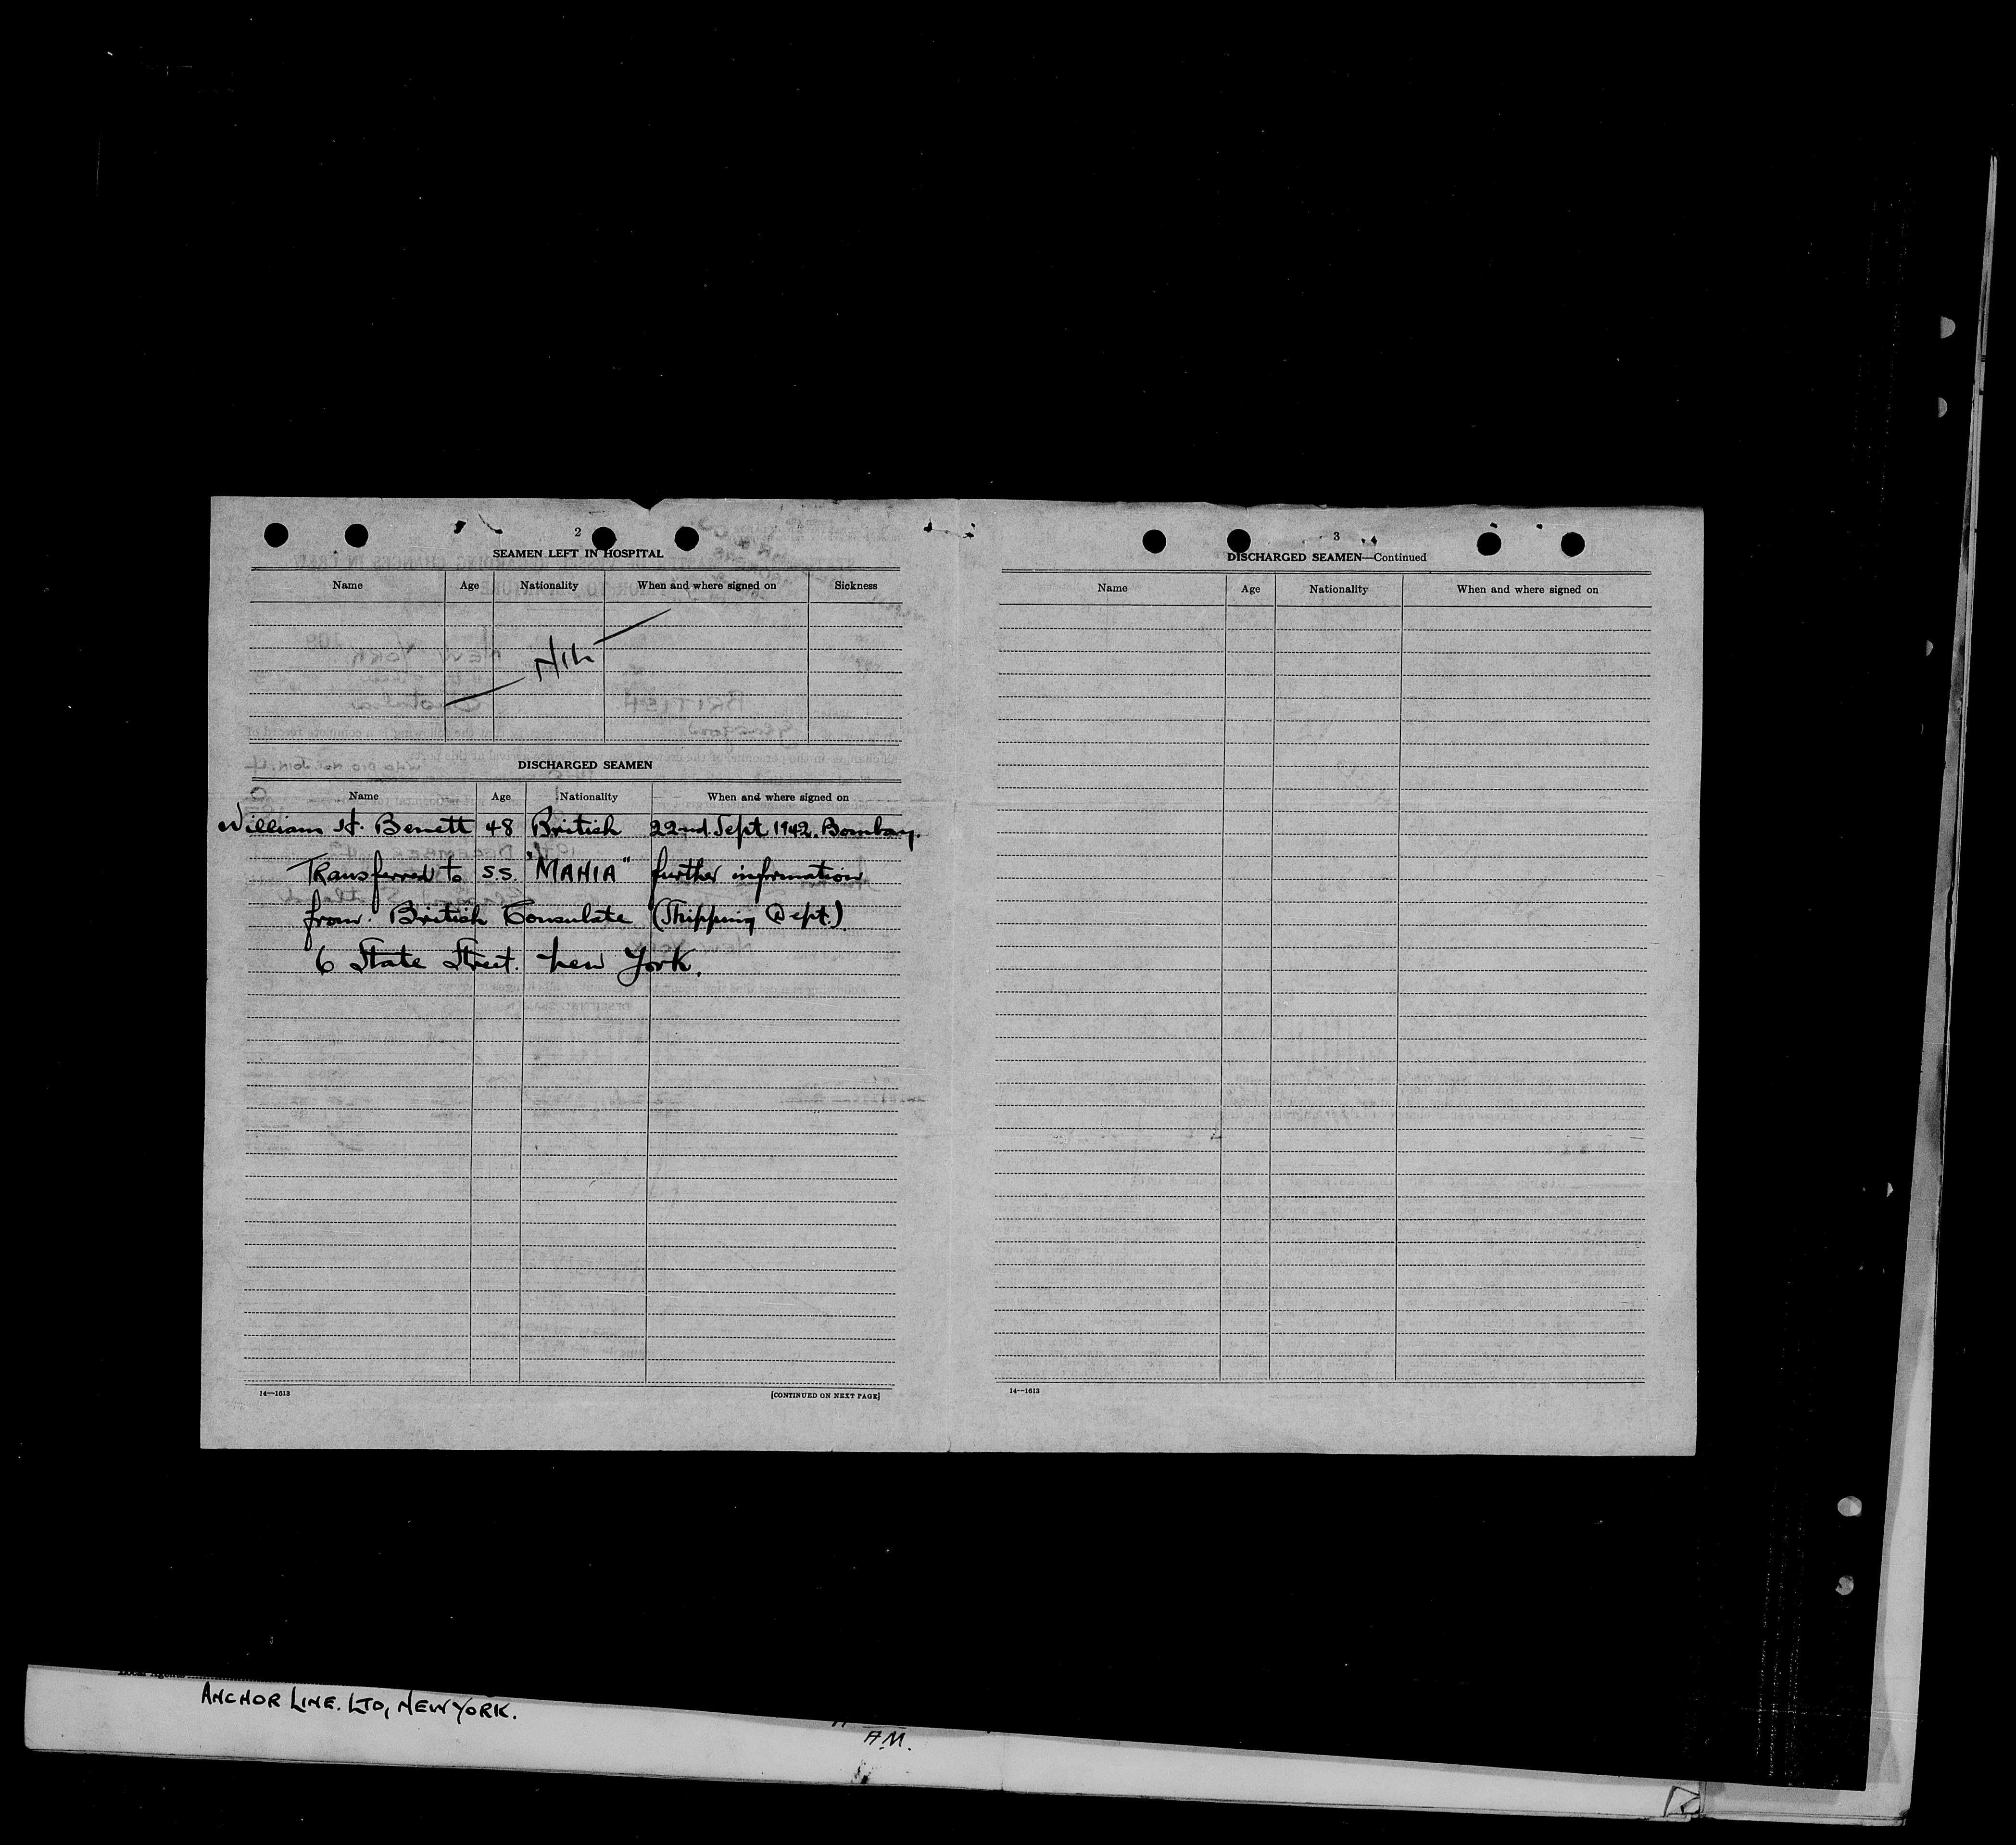 2
SEAMEN LEFT IN HOSPITAL
Name Age Nationality When and where signed on Sickness
NIL
DISCHARGED SEAMEN
Name Age Nationality When and where signed on
William H. Benett 48 British 22nd Sept 1942. Bombay.
Transferred to S.S. "MAHIA" further information
from British Consulate (Shipping Dept.)
6 State Street. New York.
14—1613 [CONTINUED ON NEXT PAGE]
3
DISCHARGED SEAMEN—Continued
Name Age Nationality When and where signed on
14—1613
ANCHOR LINE. LTD, NEW YORK.
A.M.